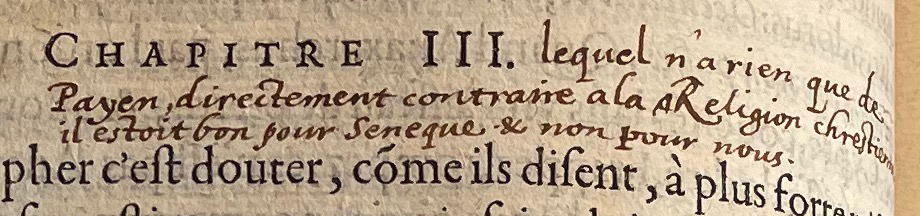 CHAPITRE III. lequel n'a rien que de
Payen, directement contraire a la Religion chrestienne
il estoit bon pour Seneque & non pour nous.
pher c'eſt douter, cõme ils diſent, à plus forte